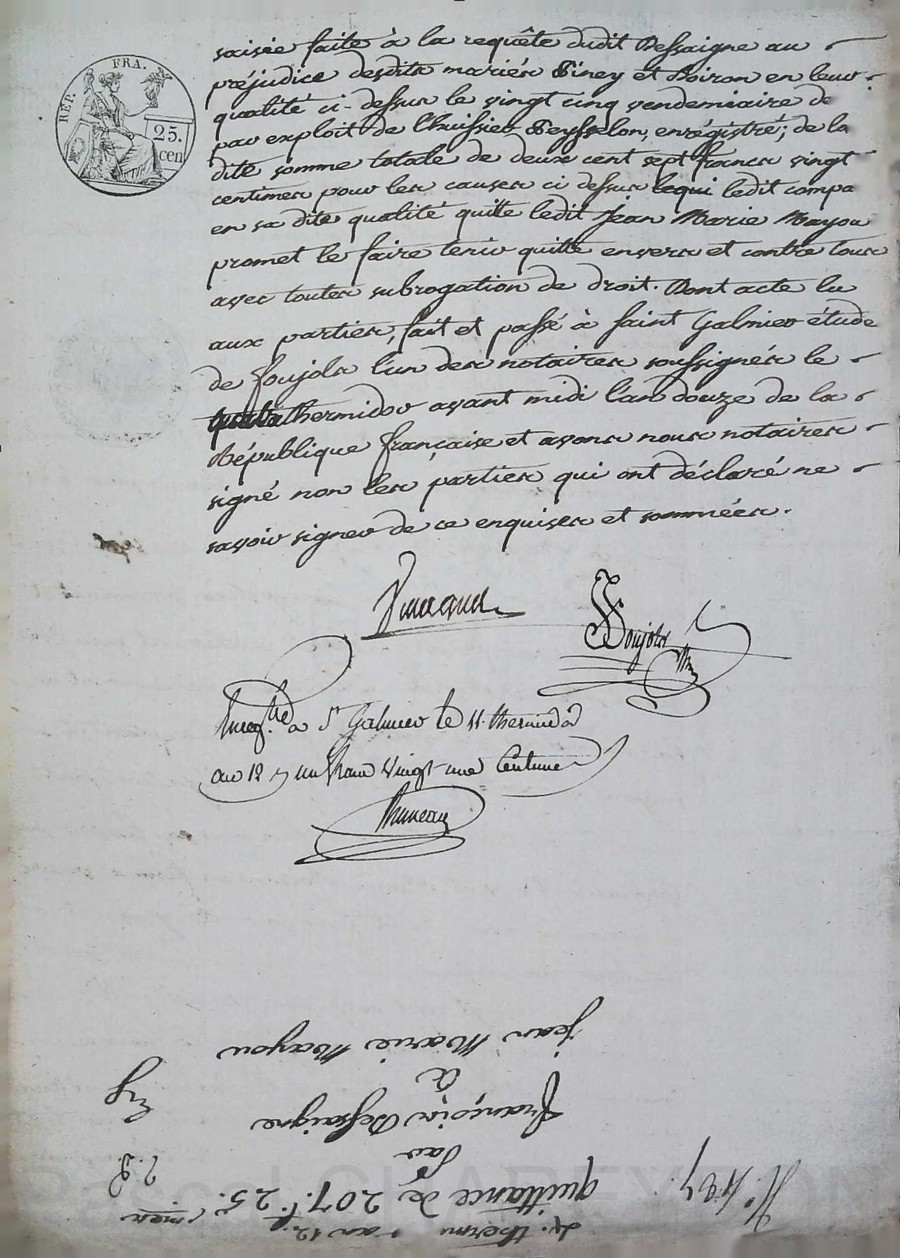 RÉP. FRA.
25.
cen
saisie faite à la requête dudit Dessaigne au
préjudice desdits mariés Piney et Poiron en leur
qualité ci-dessus le vingt cinq vendemiaire de
par exploit de l'huissier Peysselon, enrégistré; de la
dite somme totale de deux cent sept francs vingt
centimes pour les causes ci dessus ledit compa
en sa dite qualité quitte ledit Jean Marie Mayou
promet le faire tenir quitte envers et contre tous
avec toutes subrogation de droit. Dont acte lu
aux parties, fait et passé à saint Galmier étude
de Soujols l'un des notaires soussignés le
thermidor avant midi l'an douze de la
République française et avons nous notaires
signé non les parties qui ont déclaré ne
savoir signer de ce enquises et sommées.
Soujols
Enreg.tré à St Galmier le 11 thermidor
an 12 un franc vingt une centimes
Bruneau
jean Marie Mayou
à
françois Dessaigne
Par
quittance de 207.f 25.
thermi an 12.
N.°